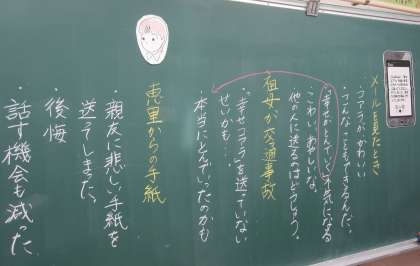 メールを見たとき
・コアラがかわいい
・こんなこともできるんだ。
・「幸せがとんでいく」が気になる
・こわい、あやしいな。
他の人に送るのはどうしよう。
祖母が交通事故
・"幸せコアラ"を送っていない
せいかも…
・本当にとんでいったのかも
恵里からの手紙
・親友に悲しい手紙を
送ってしまった。
・後悔
・話す機会も減った